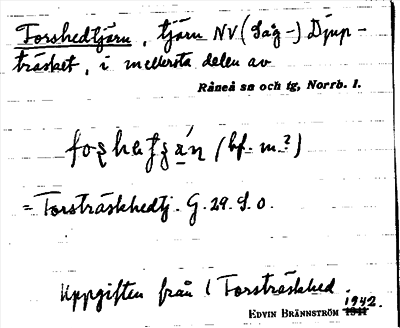 Forshedtjärn, tjärn NV (Såg-) Djup-
träsket, i mellersta delen av
Råneå sn och tg, Norrb. l.
foʂhetʂa̠n (bf. m.?)
= Torsträskhedtj. G. 29. S. O.
Uppgiften från l Torsträskhed.
EDVIN BRÄNNSTRÖM 1941 1942.